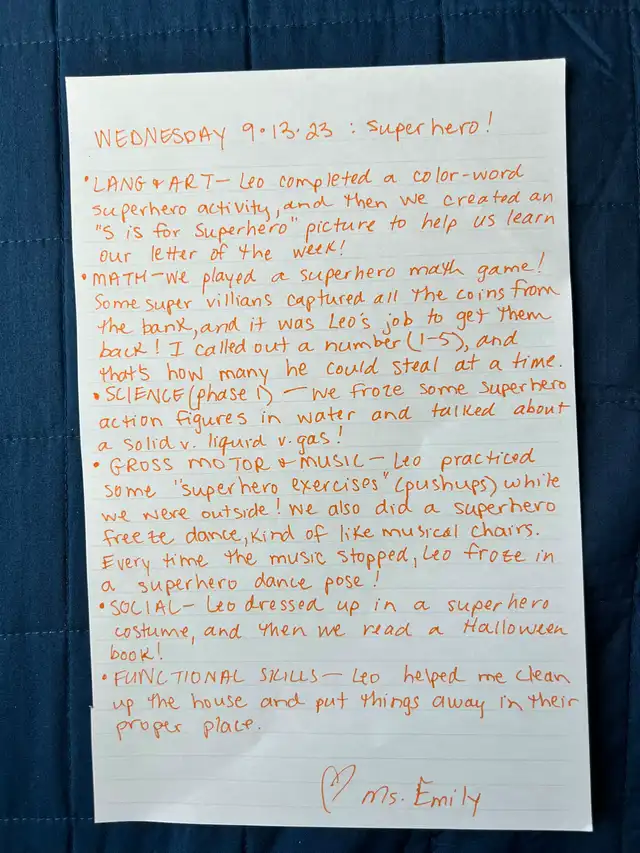 WEDNESDAY 9.13.23 : superhero!
• LANG & ART — Leo completed a color-word
superhero activity, and then we created an
"S is for Superhero" picture to help us learn
our letter of the week!
• MATH — We played a superhero math game!
Some super villians captured all the coins from
the bank, and it was Leo's job to get them
back! I called out a number (1-5), and
that's how many he could steal at a time.
• SCIENCE (phase 1) — We froze some superhero
action figures in water and talked about
a solid v. liquid v. gas!
• GROSS MOTOR & MUSIC — Leo practiced
some "superhero exercises" (pushups) while
we were outside! We also did a superhero
freeze dance, kind of like musical chairs.
Every time the music stopped, Leo froze in
a superhero dance pose!
• SOCIAL — Leo dressed up in a superhero
costume, and then we read a Halloween
book!
• FUNCTIONAL SKILLS — Leo helped me clean
up the house and put things away in their
proper place.
♡ Ms. Emily